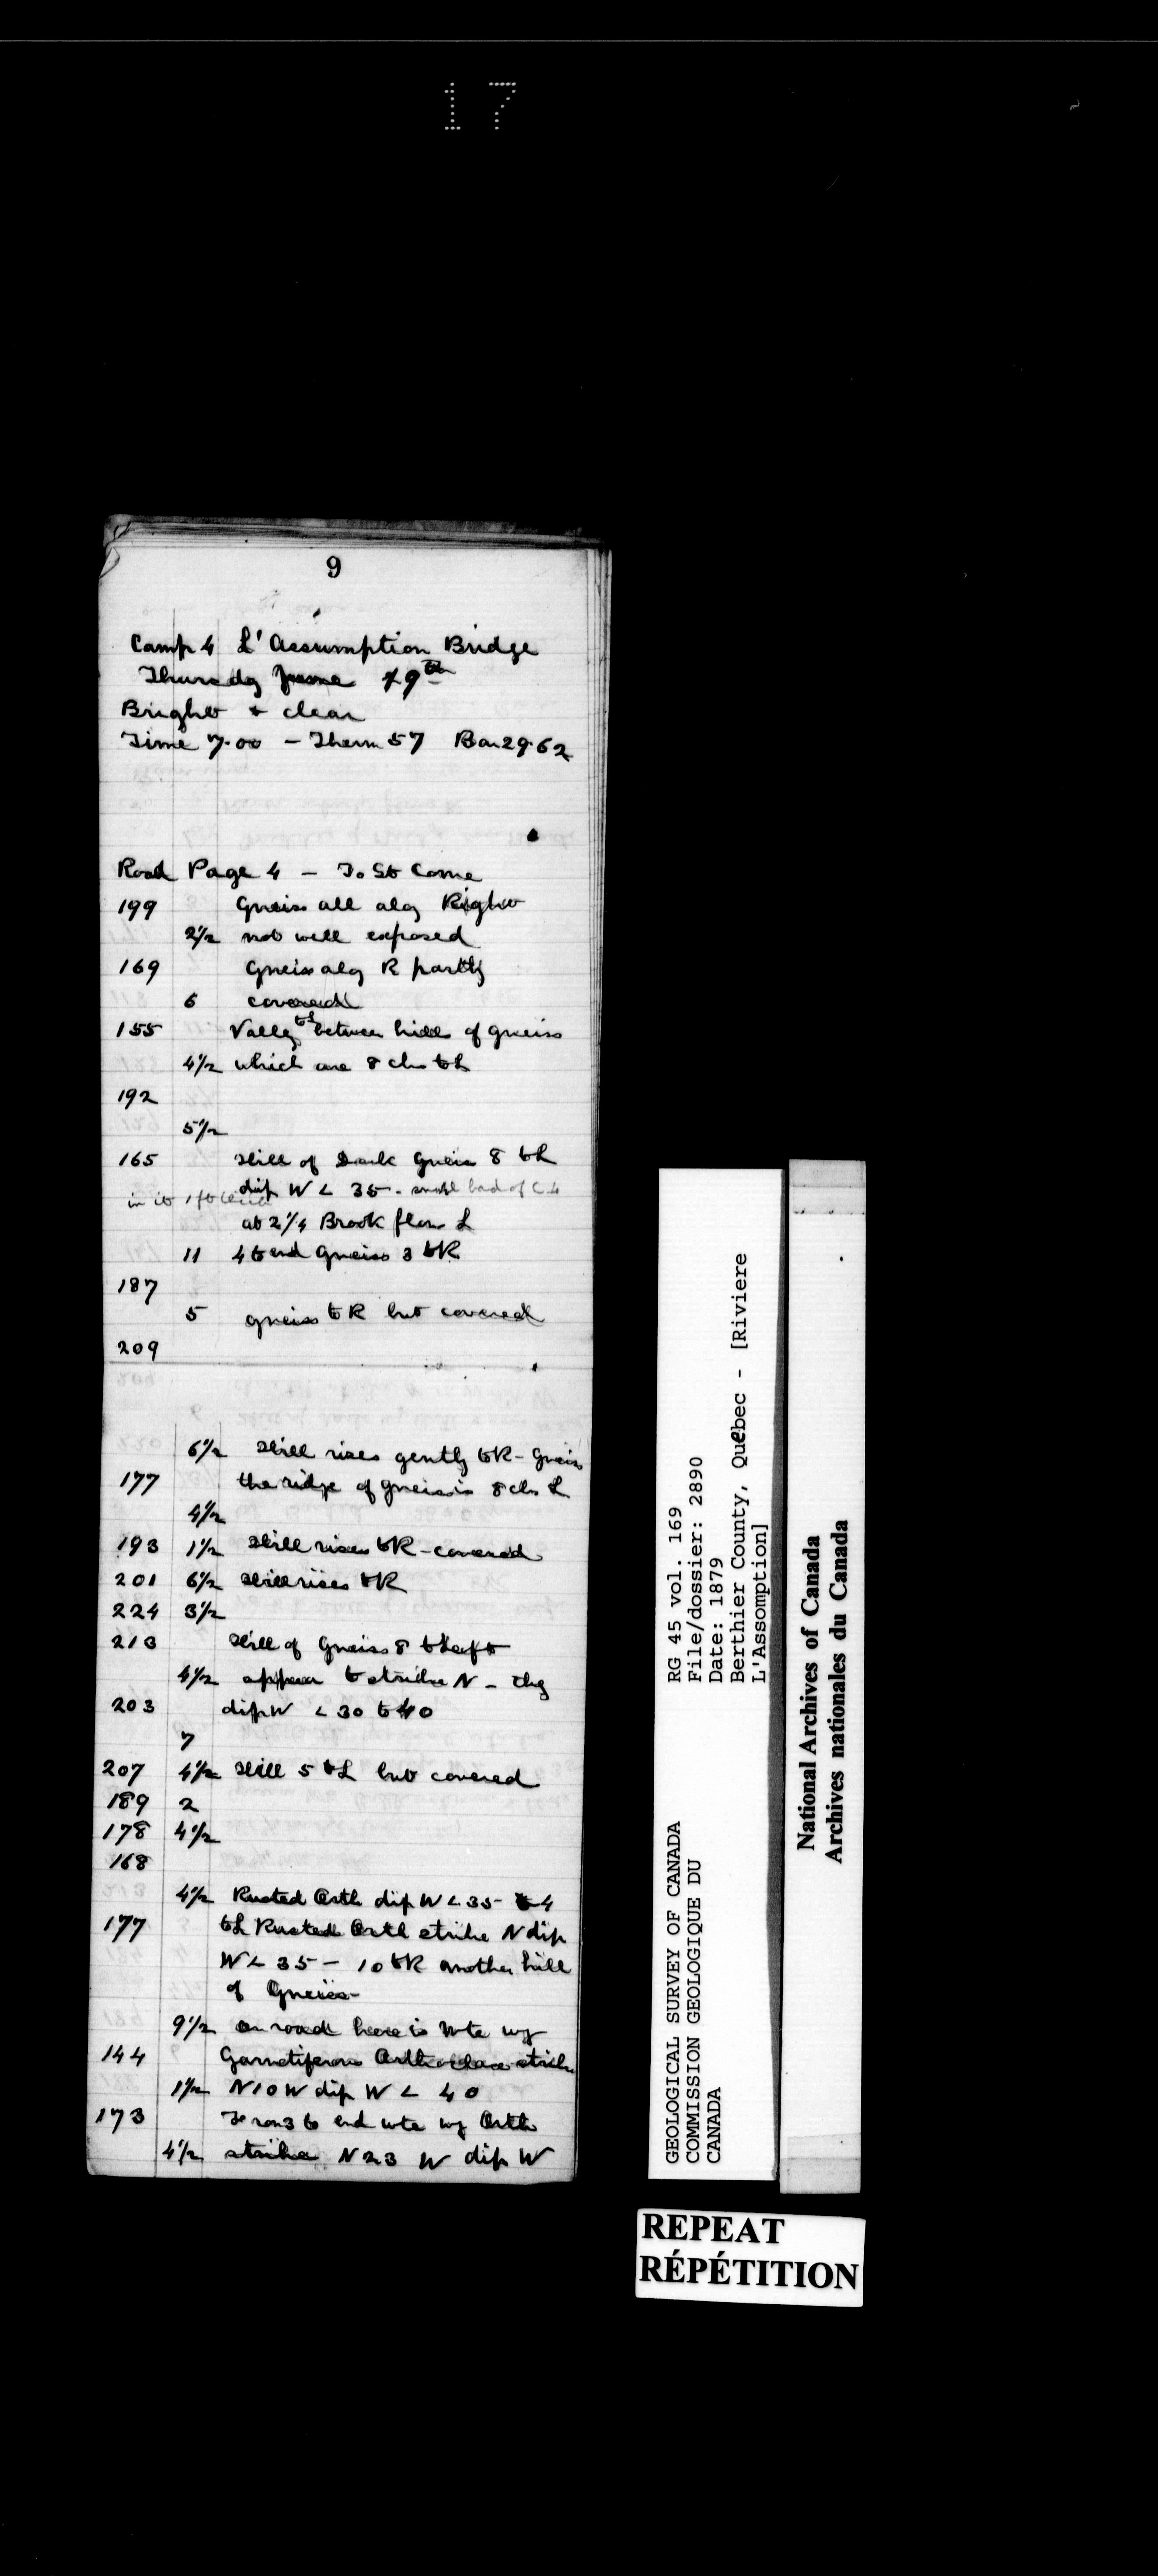 17
9
Camp 4 L'Assumption Bridge
Thursday June 19th
Bright + clear
Time 7.00 - Therm 57 Bar 29.62
Road Page 4 - To St Come
199 Gneiss all alg Right
2½ not well exposed
169 Gneiss alg R partly
6 covered
155 Valley to L between hills of gneiss
4½ which are 8 chs to L
192
5½
165 Hill of Dark Gneiss 8 to L
dip W < 35 - small band of
in it 1 ft
at 2¼ Brook flows L
11 4 to end Gneiss 3 to R
187
5 gneiss to R but covered
209
6½ Hill rises gently to R - Gneiss
177 the ridge of gneiss is 8 chs L
4½
193 1½ Hill rises to R - covered
201 6½ Hill rises to R
224 3½
213 Hill of Gneiss 8 to Left
4½ appear to strike N - thy
203 dip W < 30 to 40
7
207 4½ Hill 5 to L but covered
189 2
178 4½
168
4½ Rusted Orth dip W < 35 - 4
177 to L Rusted Orth strike N dip
W < 35 - 10 to R another hill
of Gneiss -
9½ on road here is wte wy
144 Garnetiferous Orthoclase strike
1½ N10W dip W < 40
173 From 3 to end wte wy Orth
4½ strike N 23 W dip W
GEOLOGICAL SURVEY OF CANADA
COMMISSION GEOLOGIQUE DU
CANADA
RG 45 vol. 169
File/dossier: 2890
Date: 1879
Berthier County, Québec - [Riviere
L'Assomption]
National Archives of Canada
Archives nationales du Canada
REPEAT
RÉPÉTITION